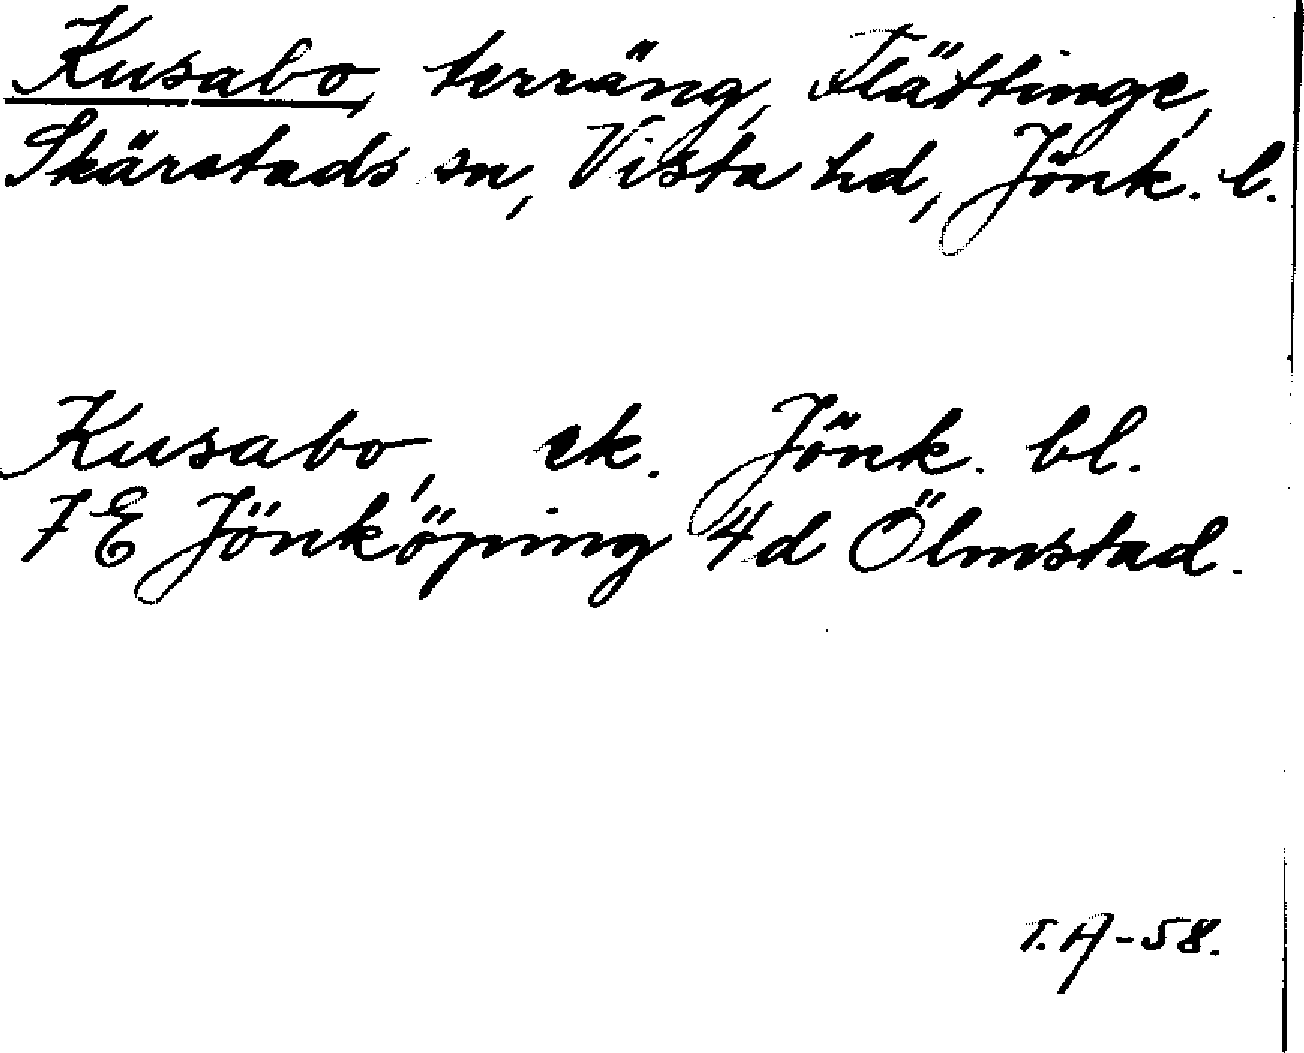 Kusabo, terräng, Flättinge,
Skärstads sn, Vista hd, Jönk. l.
Kusabo, ek. Jönk. bl.
7E Jönköping 4d Ölmstad.
T.A-58.